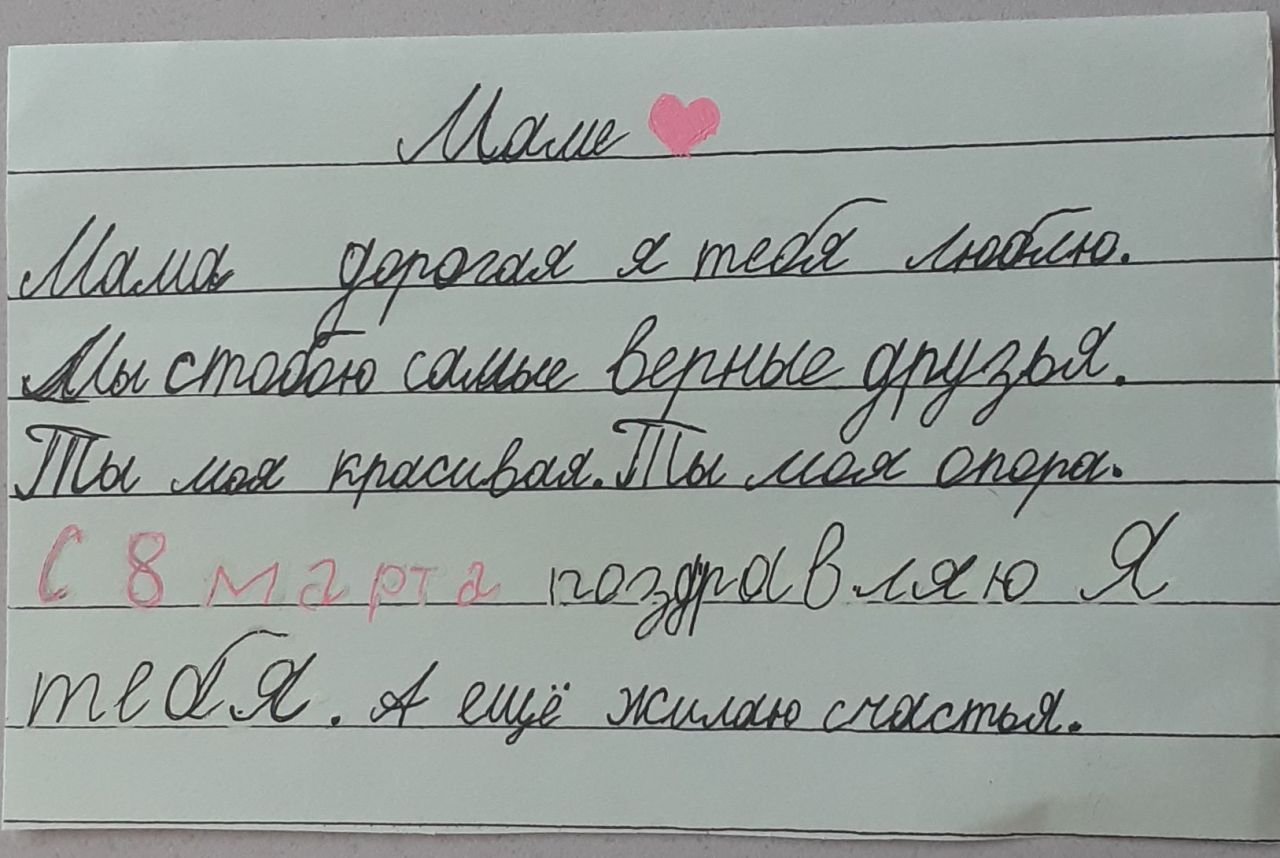 Маме
Мама дорогая я тебя люблю.
Мы стобою самые верные друзья.
Ты моя красивая. Ты моя опора.
С 8 марта поздравляю Я
тебя. А ещё жилаю счастья.